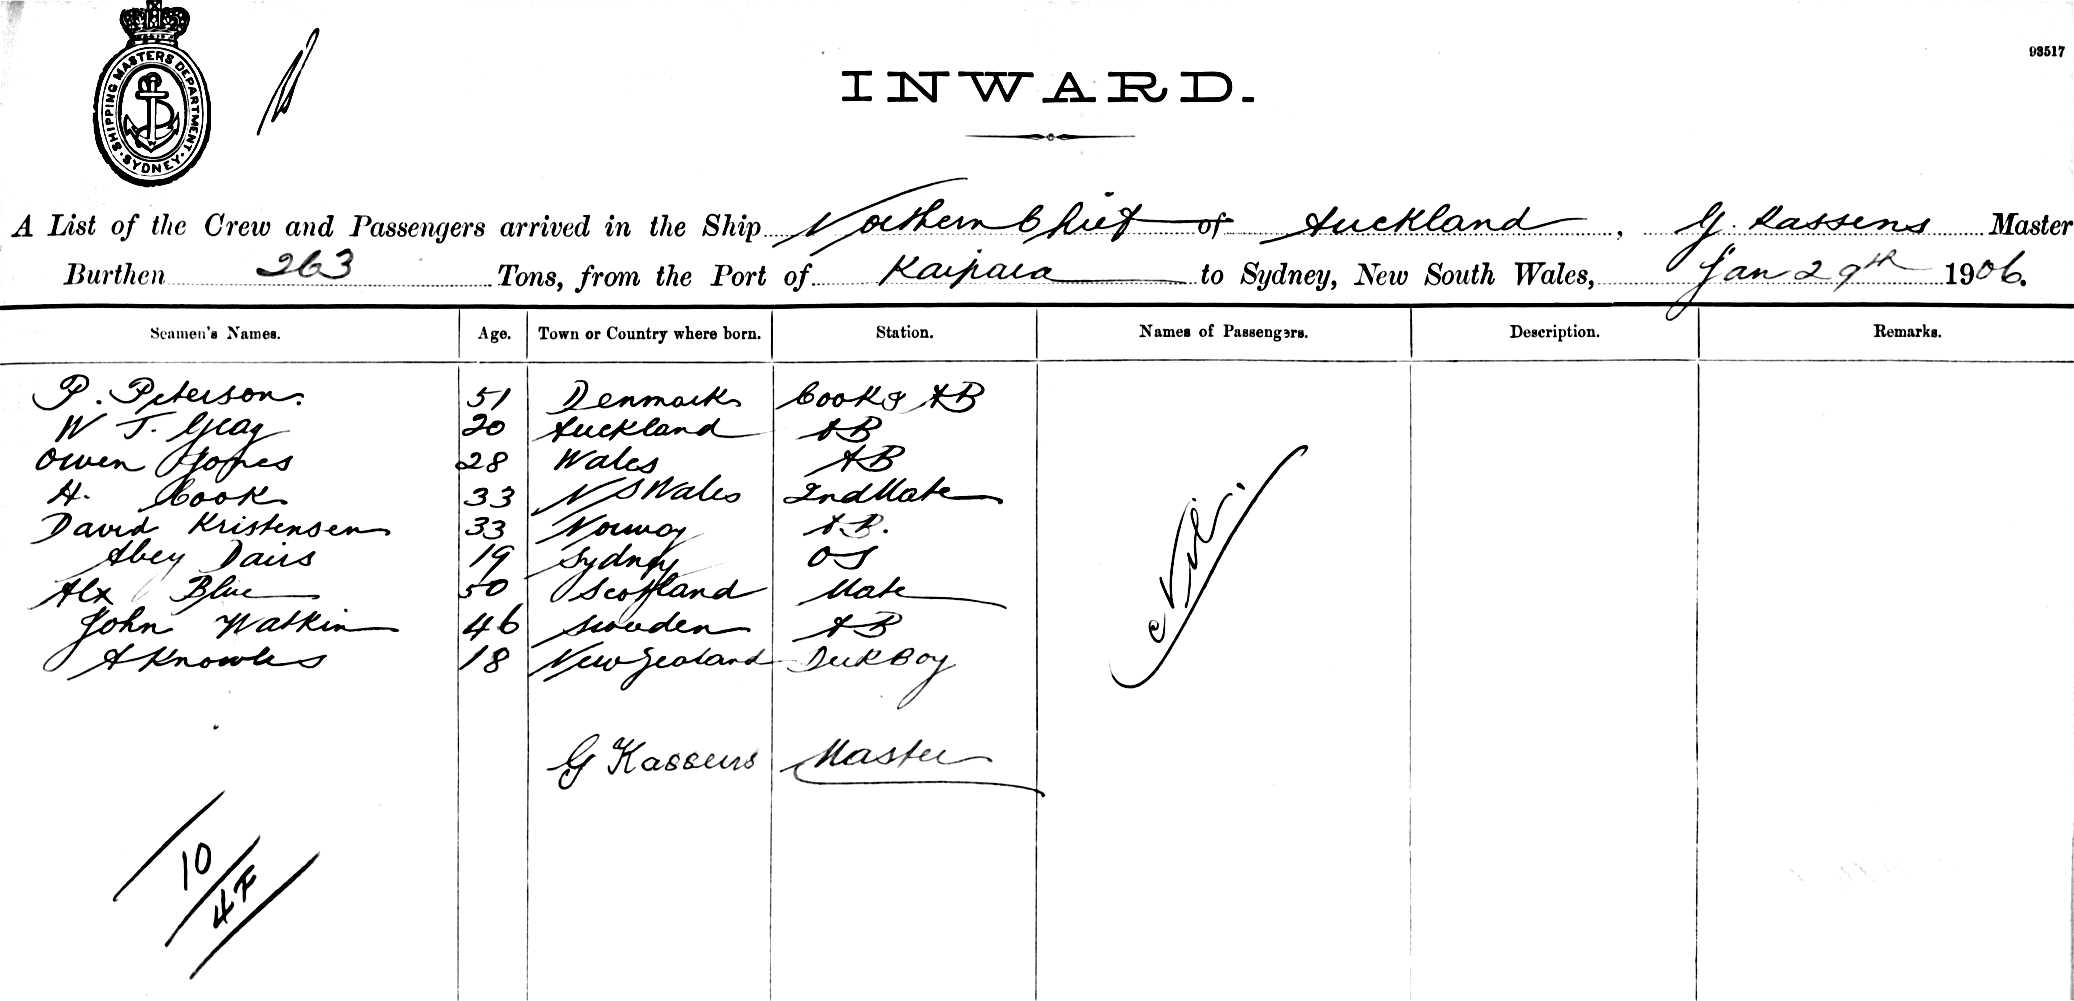 SHIPPING MASTERS DEPARTMENT. SYDNEY.
93517
INWARD.
A List of the Crew and Passengers arrived in the Ship Northern Chief of Auckland, G. Kassens Master
Burthen 263 Tons, from the Port of Kaipara to Sydney, New South Wales, Jan 29th 1906.
Seamen's Names. Age. Town or Country where born. Station. Names of Passengers. Description. Remarks.
P. Peterson. 51 Denmark Cook & AB
W J. Gray 20 Auckland AB
Owen Jones 28 Wales AB
H. Cook 33 N S Wales 2nd Mate
David Kristensen 33 Norway A.B.
Abey Davis 19 Sydney OS
Alx Blue 50 Scotland Mate
John Watkin 46 Sweden AB
A Knowles 18 New Zealand Deck Boy
Nil.
G Kassens Master
10
4F